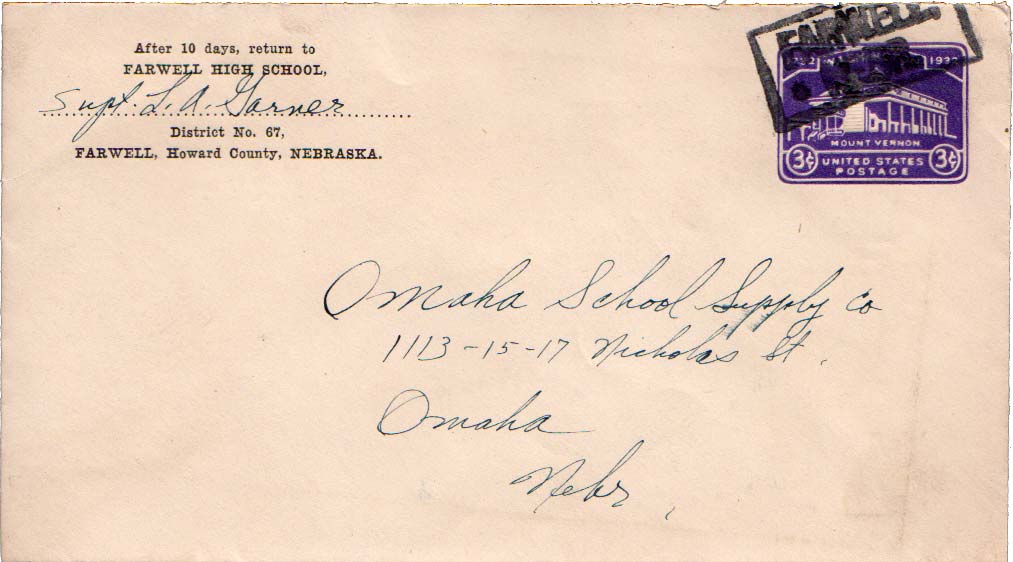 After 10 days, return to
FARWELL HIGH SCHOOL,
Supt. L. A. Garner
District No. 67,
FARWELL, Howard County, NEBRASKA.
FARWELL,
1932
MOUNT VERNON
3¢ UNITED STATES 3¢
POSTAGE
Omaha School Supply Co
1113-15-17 Nicholas St.
Omaha
Nebr,